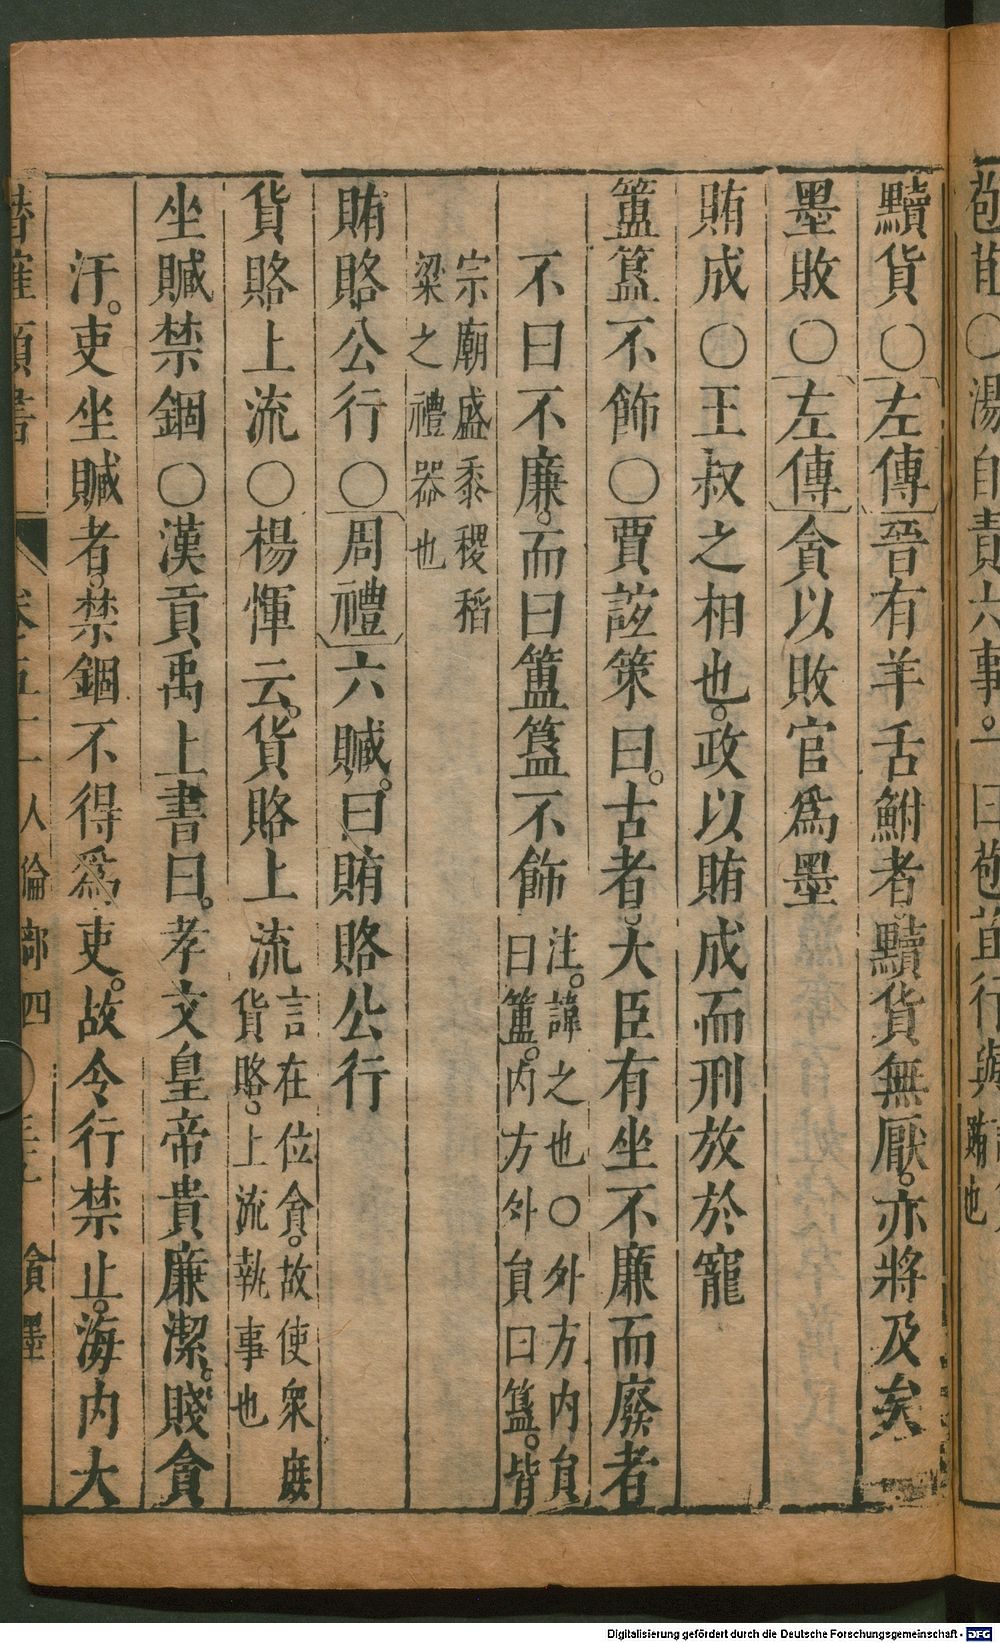 苞苴〇湯自責六事。一曰苞苴行與
賄也
黷貨〇左傳晉有羊舌鮒者黷貨無厭。亦將及矣
墨敗〇左傳貪以敗官爲墨
賄成〇王叔之相也。政以賄成而刑放於寵
簠簋不飾〇賈誼策曰。古者大臣有坐不廉而廢者
不曰不廉。而曰簠簋不飾
注。諱之也〇外方内員
曰簠。内方外員曰簋。皆
宗廟盛黍稷稻
粱之禮器也
賄賂公行〇周禮六贓。曰賄賂公行
貨賂上流〇楊惲云。貨賂上流
言在位貪。故使衆庶
貨賂。上流執事也
坐贓禁錮〇漢貢禹上書曰。孝文皇帝貴廉潔。賤貪
汙。吏坐贓者。禁錮不得爲吏。故令行禁止。海内大
卷五十一 人倫部四〇 貪墨
Digitalisierung gefördert durch die Deutsche Forschungsgemeinschaft - DFG